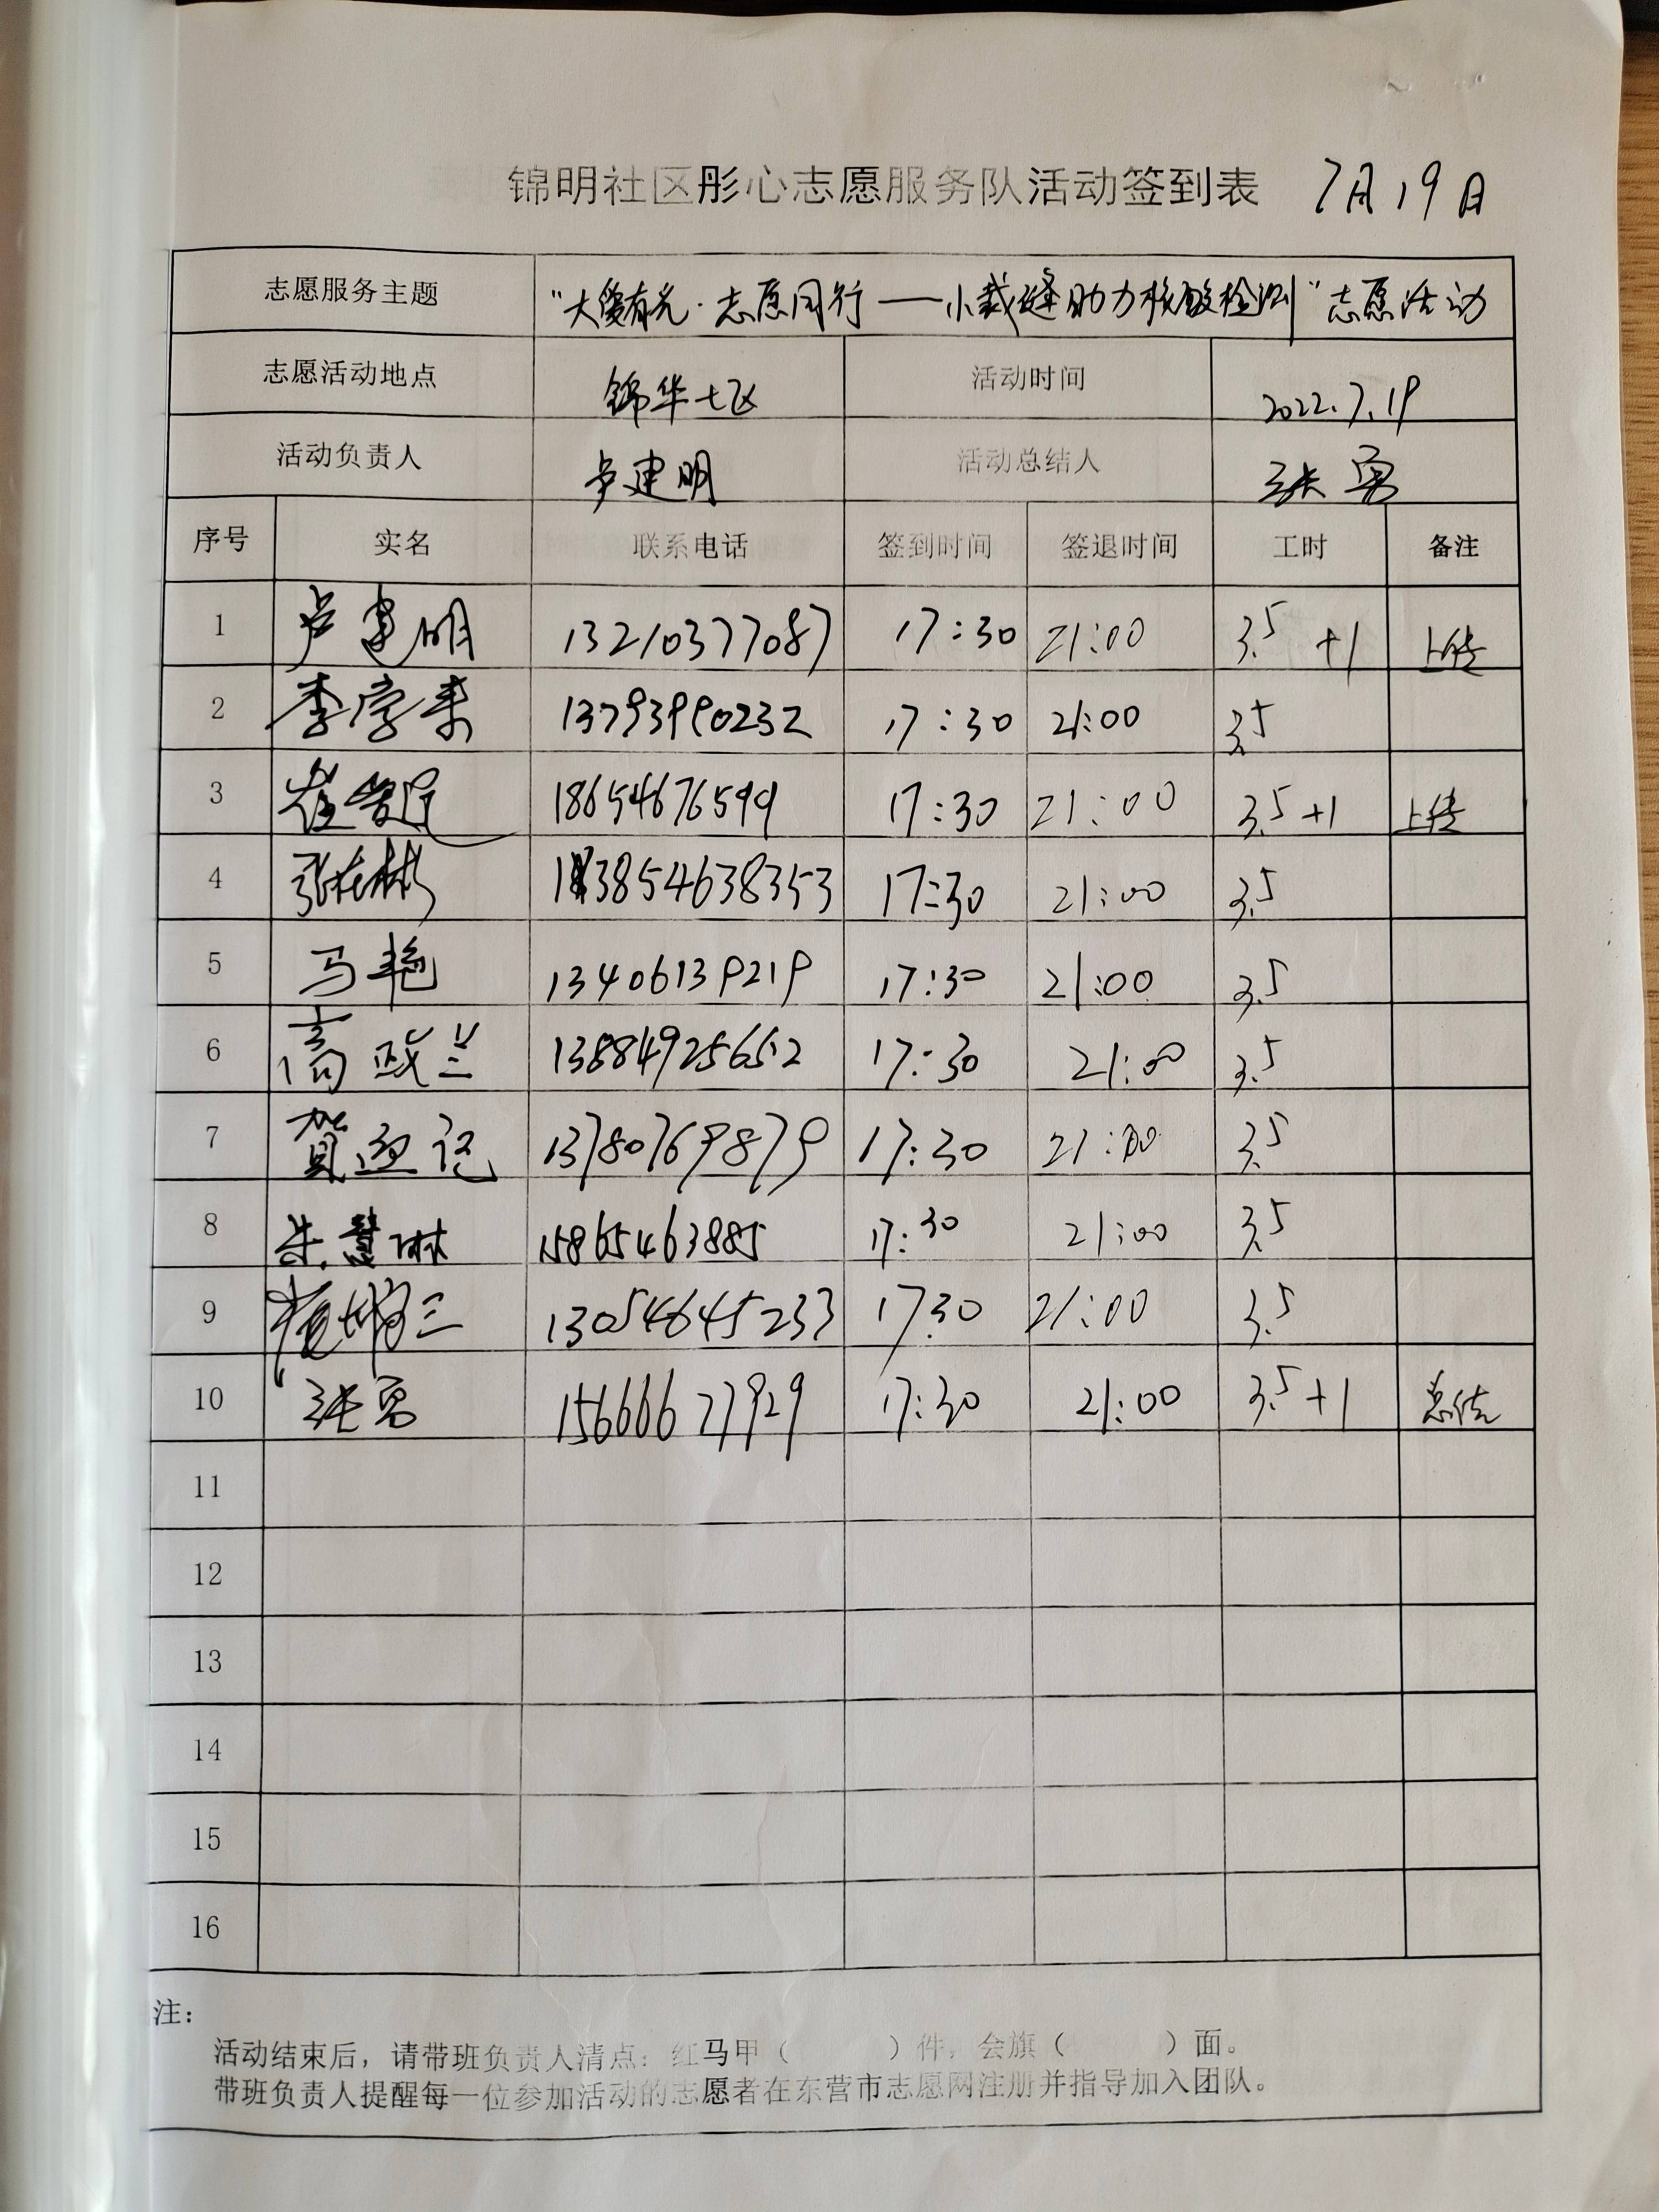 锦明社区彤心志愿服务队活动签到表 7月19日
志愿服务主题 "大爱有光·志愿同行——小裁缝助力核酸检测"志愿活动
志愿活动地点 锦华七区 活动时间 2022.7.19
活动负责人 卢建明 活动总结人 张勇
序号 实名 联系电话 签到时间 签退时间 工时 备注
1 卢建明 13210377087 17:30 21:00 3.5 +1 上传
2 李学来 13793990232 17:30 21:00 3.5
3 18654676599 17:30 21:00 3.5+1 上传
4 13854638353 17:30 21:00 3.5
5 马艳 13406139219 17:30 21:00 3.5
6 高政兰 13884925652 17:30 21:00 3.5
7 贺 13780769879 17:30 21:00 3.5
8 朱慧琳 15865463885 17:30 21:00 3.5
9 13054645233 17:30 21:00 3.5
10 张勇 15666627929 17:30 21:00 3.5+1 总结
11
12
13
14
15
16
注：
活动结束后，请带班负责人清点：红马甲（ ）件，会旗（ ）面。
带班负责人提醒每一位参加活动的志愿者在东营市志愿网注册并指导加入团队。